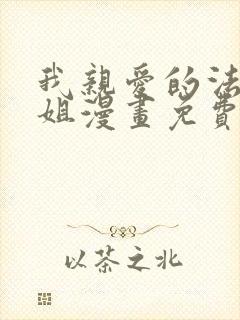 我親愛的法
姐漫畫免費
以茶之北